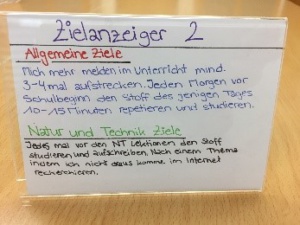 Zielanzeiger 2
Allgemeine Ziele
Mich mehr melden im Unterricht mind.
3-4 mal aufstrecken. Jeden Morgen vor
Schulbeginn den Stoff des jenigen Tages
10-15 Minuten repetieren und studieren.
Natur und Technik Ziele
Jedes mal vor den NT Lektionen den Stoff
studieren und aufschreiben. Nach einem Thema
indem ich nicht draus komme im Internet
recherchieren.